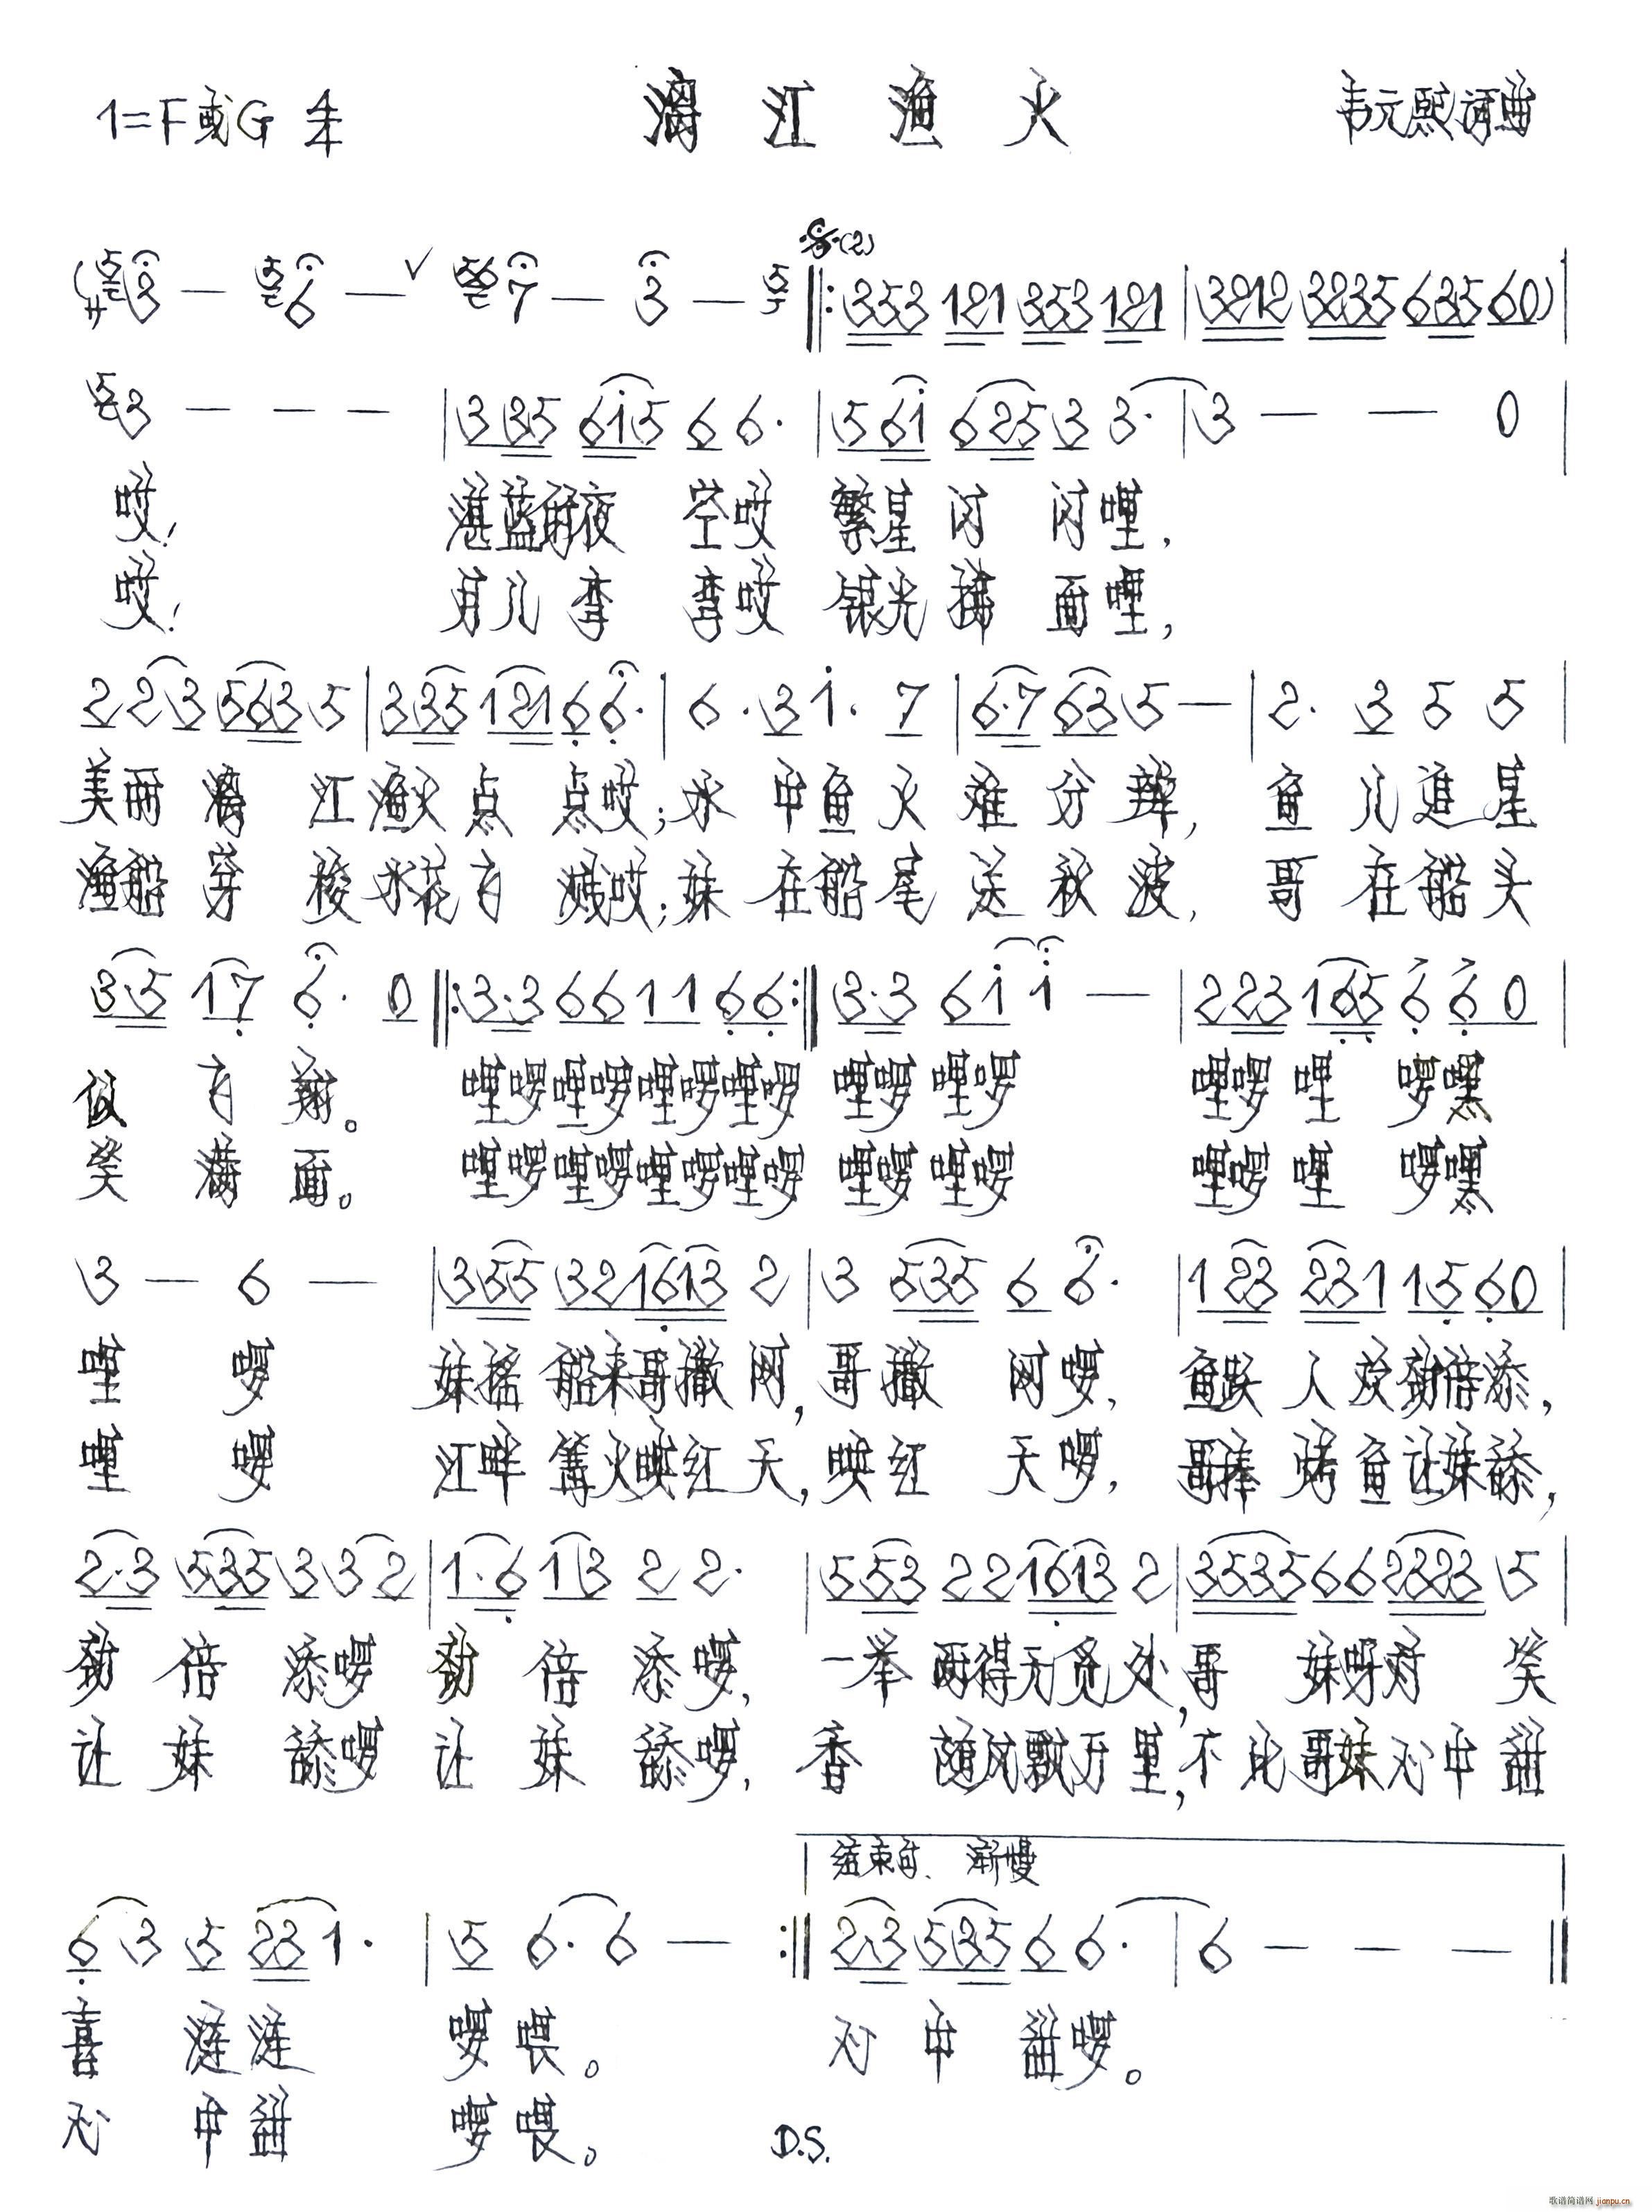 漓江渔火
1=F或G 4/4
韦元熙词曲
(2)
353 121 353 121 | 3212 3235 635 60)
3 — — — | 3 35 6i5 6 6. | 5 6i 625 3 3. | 3 — — 0
哎! 湛蓝的夜 空哎 繁星闪 闪哩,
哎! 月儿弯 弯哎 银光拂 面哩,
2 2 3 563 5 | 335 121 6 6. | 6. 3 i. 7 | 6.7 63 5 — | 2. 3 5 5
美丽漓 江渔火点 点哎;水 中鱼火难分辨, 鱼儿追星
渔船穿 梭水花飞 溅哎;妹 在船尾送秋波, 哥在船头
3.5 17 6. 0 ‖: 3.3 66 11 66 :‖ 3.3 6i i — | 223 165 6 6 0
似 飞 翔。 哩啰哩啰哩啰哩啰 哩啰哩啰 哩啰哩 啰嘿
笑 满 面。 哩啰哩啰哩啰哩啰 哩啰哩啰 哩啰哩 啰嘿
3 — 6 — | 355 321613 2 | 3 535 6 6. | 123 231 15 60
哩 啰 妹摇 船来哥撒网,哥撒 网啰, 鱼跃人欢劲倍添,
哩 啰 江畔 篝火映红天,映红 天啰, 哥捧烤鱼让妹舔,
2.3 535 3 3 2 | 1.6 13 2 2. | 553 221613 2 | 3535 66 2323 5
劲 倍 添啰 劲 倍 添啰, 一举 两得无觅处,哥 妹呀对 笑
让 妹 舔啰 让 妹 舔啰, 香 随风飘万里,不比哥妹心中甜
结束句、渐慢
6 3 5 23 1. | 5 6. 6 — :‖ 2.3 535 6 6. | 6 — — —
喜 涟涟 啰喂。 心 中 甜啰。
心 中甜 啰喂。
D.S.
歌谱简谱网 jianpu.cn